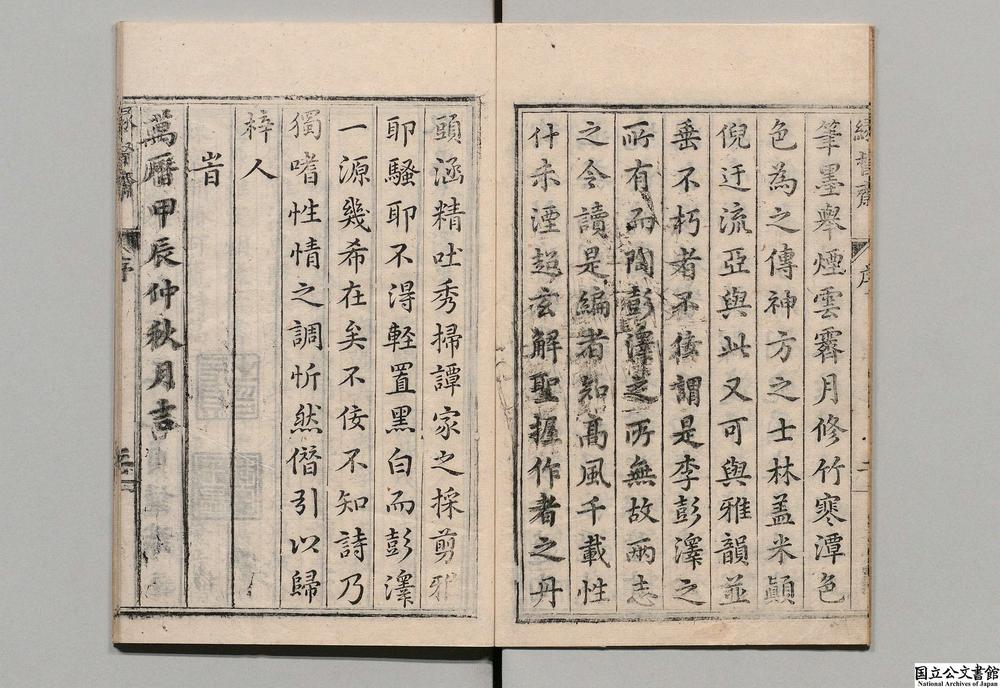 筆墨舉煙雲霽月修竹寒潭色
色為之傳神方之士林盖米顛
倪迂流亞與此又可與雅韻並
垂不朽者不佞謂是李彭澤之
所有而陶彭澤之所無故兩志
之令讀是編者知高風千載性
什未湮超玄解聖握作者之丹
序
頭涵精吐秀掃譚家之採剪雅
耶騷耶不淂輊置黑白而彭澤
一源幾希在矣不佞不知詩乃
獨嗜性情之調忻然僭引以歸
梓人
旹
萬曆甲辰仲秋月吉
序
国立公文書館
National Archives of Japan